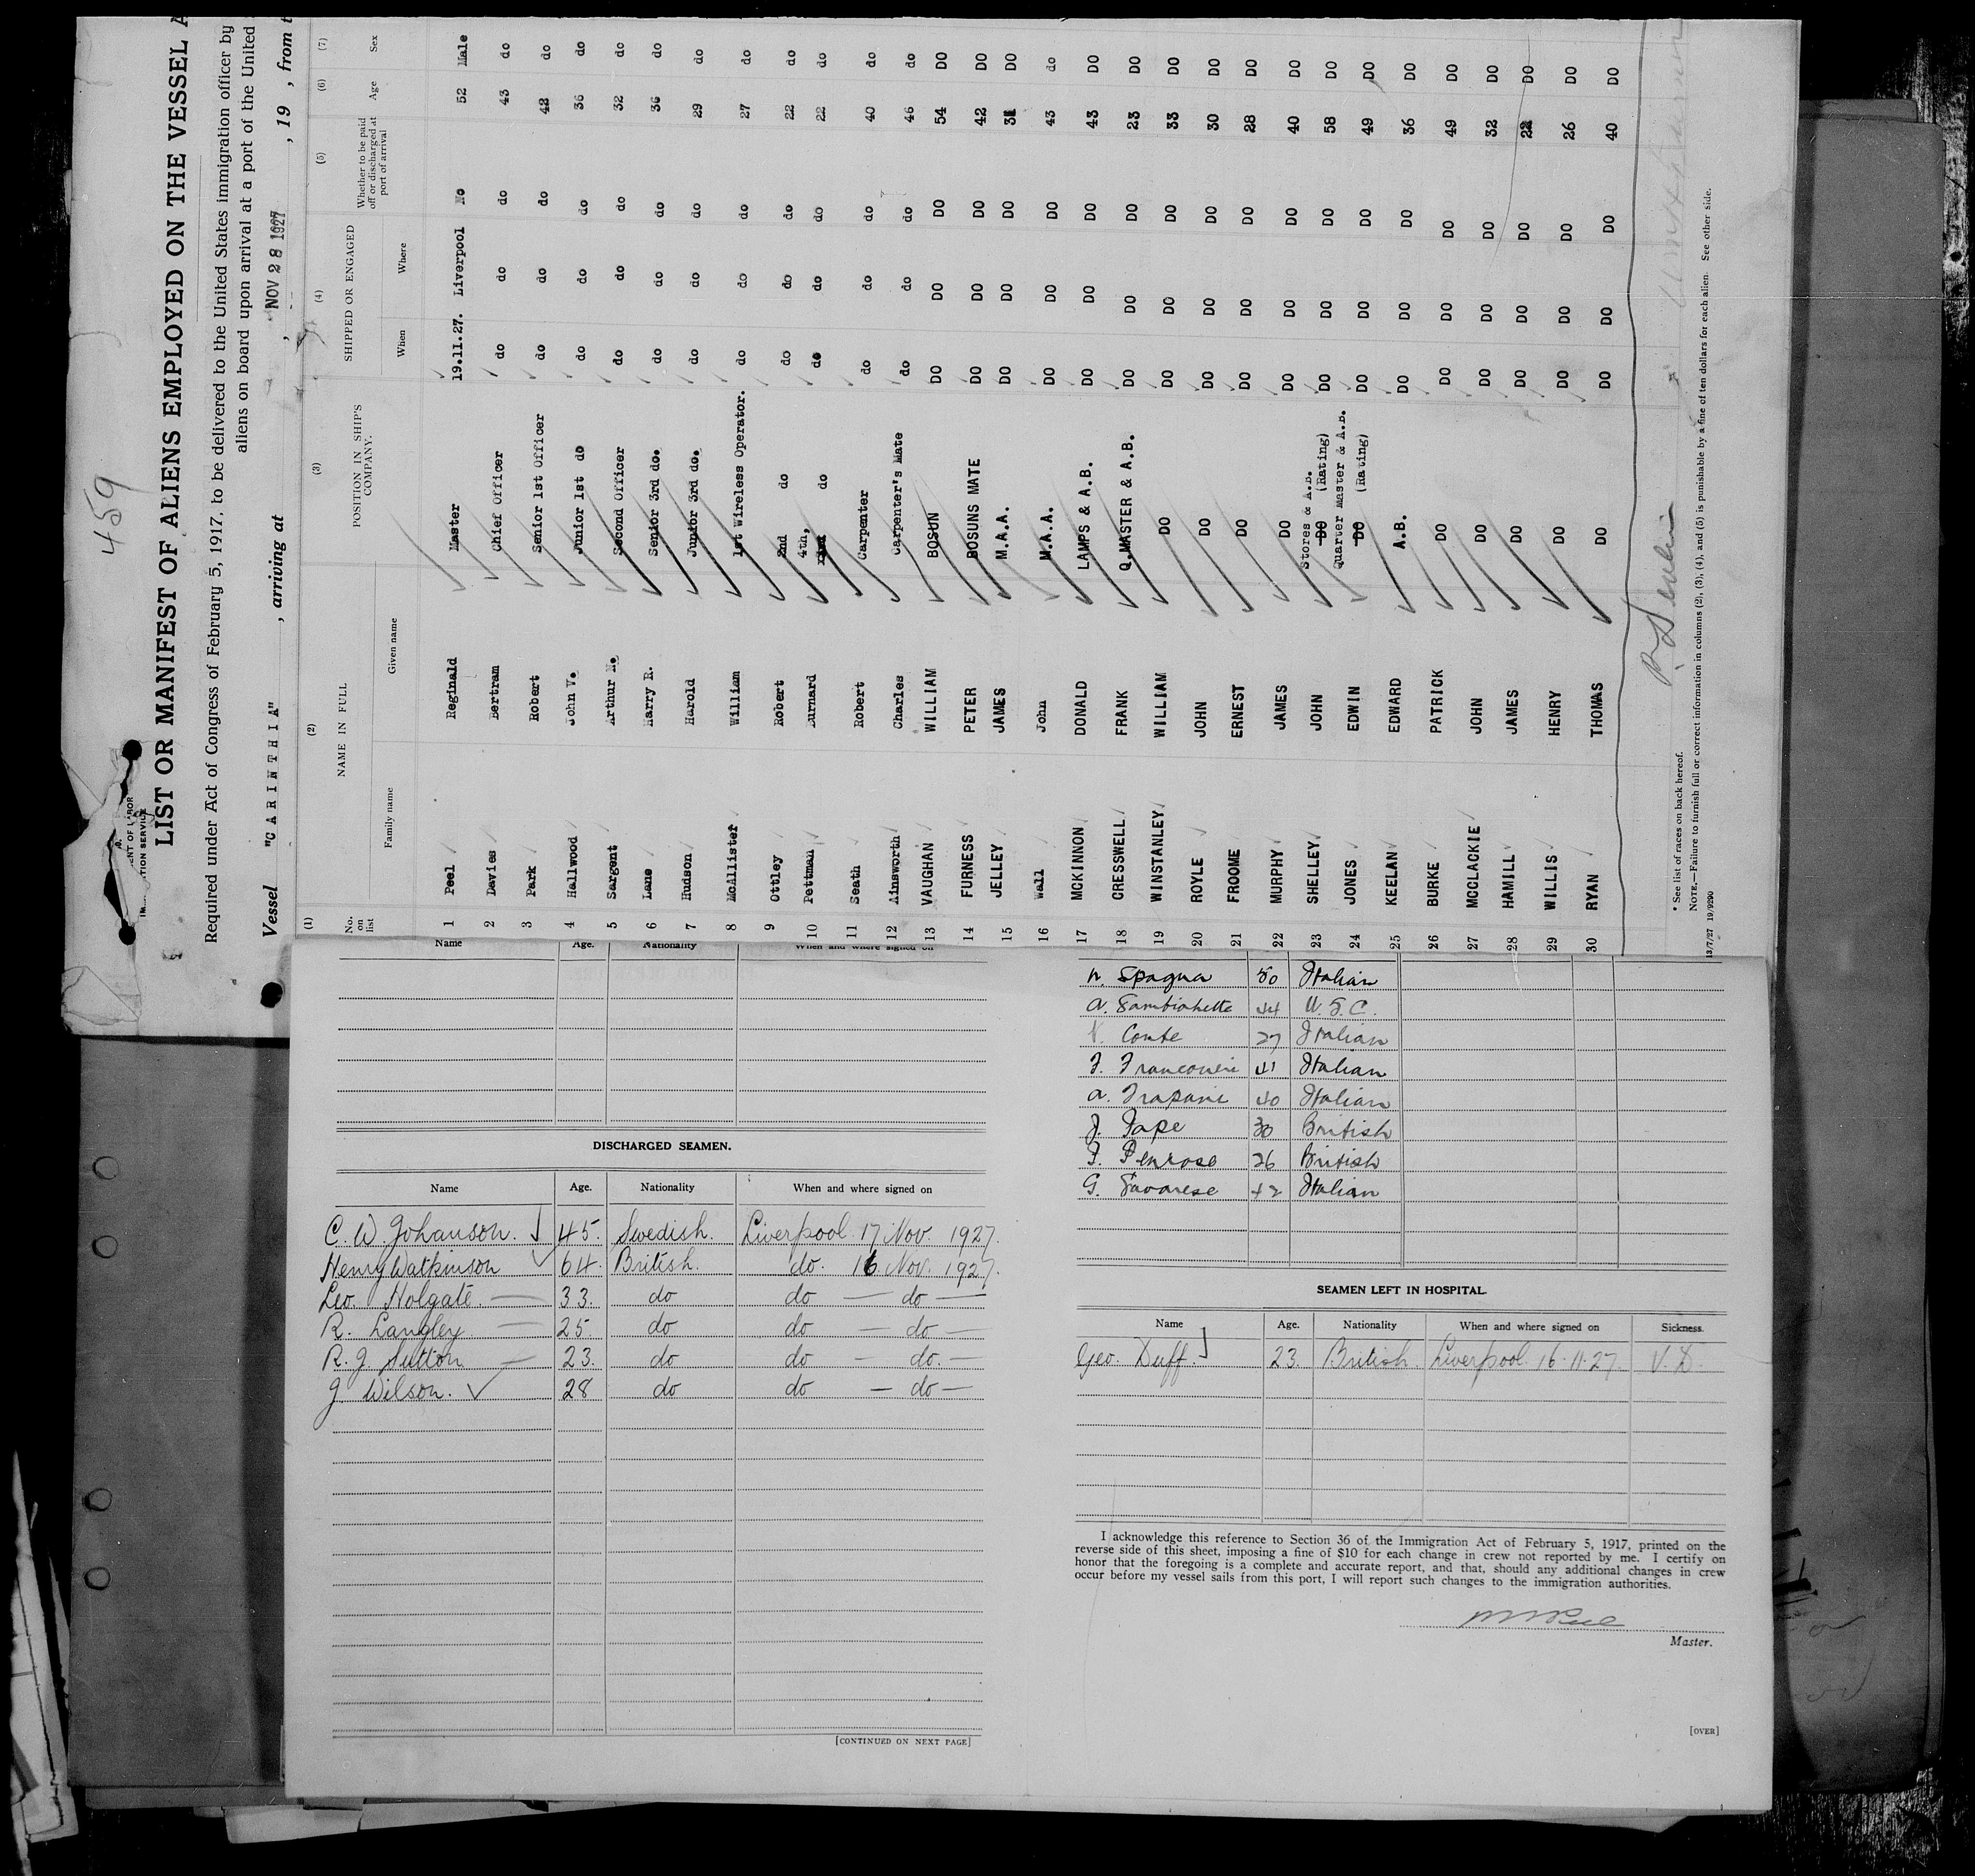 459
LIST OR MANIFEST OF ALIENS EMPLOYED ON THE VESSEL A
Required under Act of Congress of February 5, 1917, to be delivered to the United States immigration officer by
aliens on board upon arrival at a port of the United
Vessel "CARINTHIA", arriving at , NOV 28 1927 , 19 , from t
(1) (2) (3) (4) (5) (6) (7)
No. on list NAME IN FULL POSITION IN SHIP'S COMPANY. SHIPPED OR ENGAGED Whether to be paid off or discharged at port of arrival Age Sex
Family name Given name When Where
1 Peel Reginald Master 19.11.27. Liverpool No 52 Male
2 Davies Bertram Chief Officer do do do 43 do
3 Park Robert Senior 1st Officer do do do 42 do
4 Hallwood John V. Junior 1st do do do do 36 do
5 Sargent Arthur N. Second Officer do do do 32 do
6 Lane Harry R. Senior 3rd do. do do do 36 do
7 Hudson Harold Junior 3rd do. do do do 29 do
8 McAllister William 1st Wireless Operator. do do do 27 do
9 Ottley Robert 2nd do do do do 22 do
10 Pettman Burnard 4th, do do do do 22 do
11 Seath Robert Carpenter do do do 40 do
12 Ainsworth Charles Carpenter's Mate do do do 46 do
13 VAUGHAN WILLIAM BOSUN DO DO DO 54 DO
14 FURNESS PETER BOSUNS MATE DO DO DO 42 DO
15 JELLEY JAMES M.A.A. DO DO DO 31 DO
16 Wall John M.A.A. DO DO DO 43 do
17 MCKINNON DONALD LAMPS & A.B. DO DO DO 43 DO
18 CRESSWELL FRANK Q.MASTER & A.B. DO DO DO 23 DO
19 WINSTANLEY WILLIAM DO DO DO DO 33 DO
20 ROYLE JOHN DO DO DO DO 30 DO
21 FROOME ERNEST DO DO DO DO 28 DO
22 MURPHY JAMES DO DO DO DO 40 DO
23 SHELLEY JOHN Stores & A.B. DO (Rating) DO DO DO 58 DO
24 JONES EDWIN Quarter Master & A.B. DO (Rating) DO DO DO 49 DO
25 KEELAN EDWARD A.B. DO DO DO 36 DO
26 BURKE PATRICK DO DO DO DO 49 DO
27 MCCLACKIE JOHN DO DO DO DO 32 DO
28 HAMILL JAMES DO DO DO DO 22 DO
29 WILLIS HENRY DO DO DO DO 26 DO
30 RYAN THOMAS DO DO DO DO 40 DO
* See list of races on back hereof.
NOTE.—Failure to furnish full or correct information in columns (2), (3), (4), and (5) is punishable by a fine of ten dollars for each alien. See other side.
13/7/27 19/9290
Name Age. Nationality When and where signed on
DISCHARGED SEAMEN.
Name Age. Nationality When and where signed on
C. W. Johanson. 45. Swedish. Liverpool 17 Nov. 1927.
Henry Watkinson 64. British. do. 16 Nov. 1927.
Leo. Holgate. — 33. do do — do —
R. Langley. — 25. do do — do —
R. J. Sutton — 23. do do — do. —
J. Wilson. 28 do do — do —
[CONTINUED ON NEXT PAGE]
N. Spagna 50 Italian
A. 44 U.S.C.
V. Conte 27 Italian
F. 41 Italian
A. Trapani 40 Italian
J. Pape 30 British
F. Penrose 26 British
G. Savarese 42 Italian
SEAMEN LEFT IN HOSPITAL.
Name Age. Nationality When and where signed on Sickness.
Geo. Duff. 23. British. Liverpool 16.11.27. V.D.
I acknowledge this reference to Section 36 of the Immigration Act of February 5, 1917, printed on the
reverse side of this sheet, imposing a fine of $10 for each change in crew not reported by me. I certify on
honor that the foregoing is a complete and accurate report, and that, should any additional changes in crew
occur before my vessel sails from this port, I will report such changes to the immigration authorities.
Master.
[OVER]